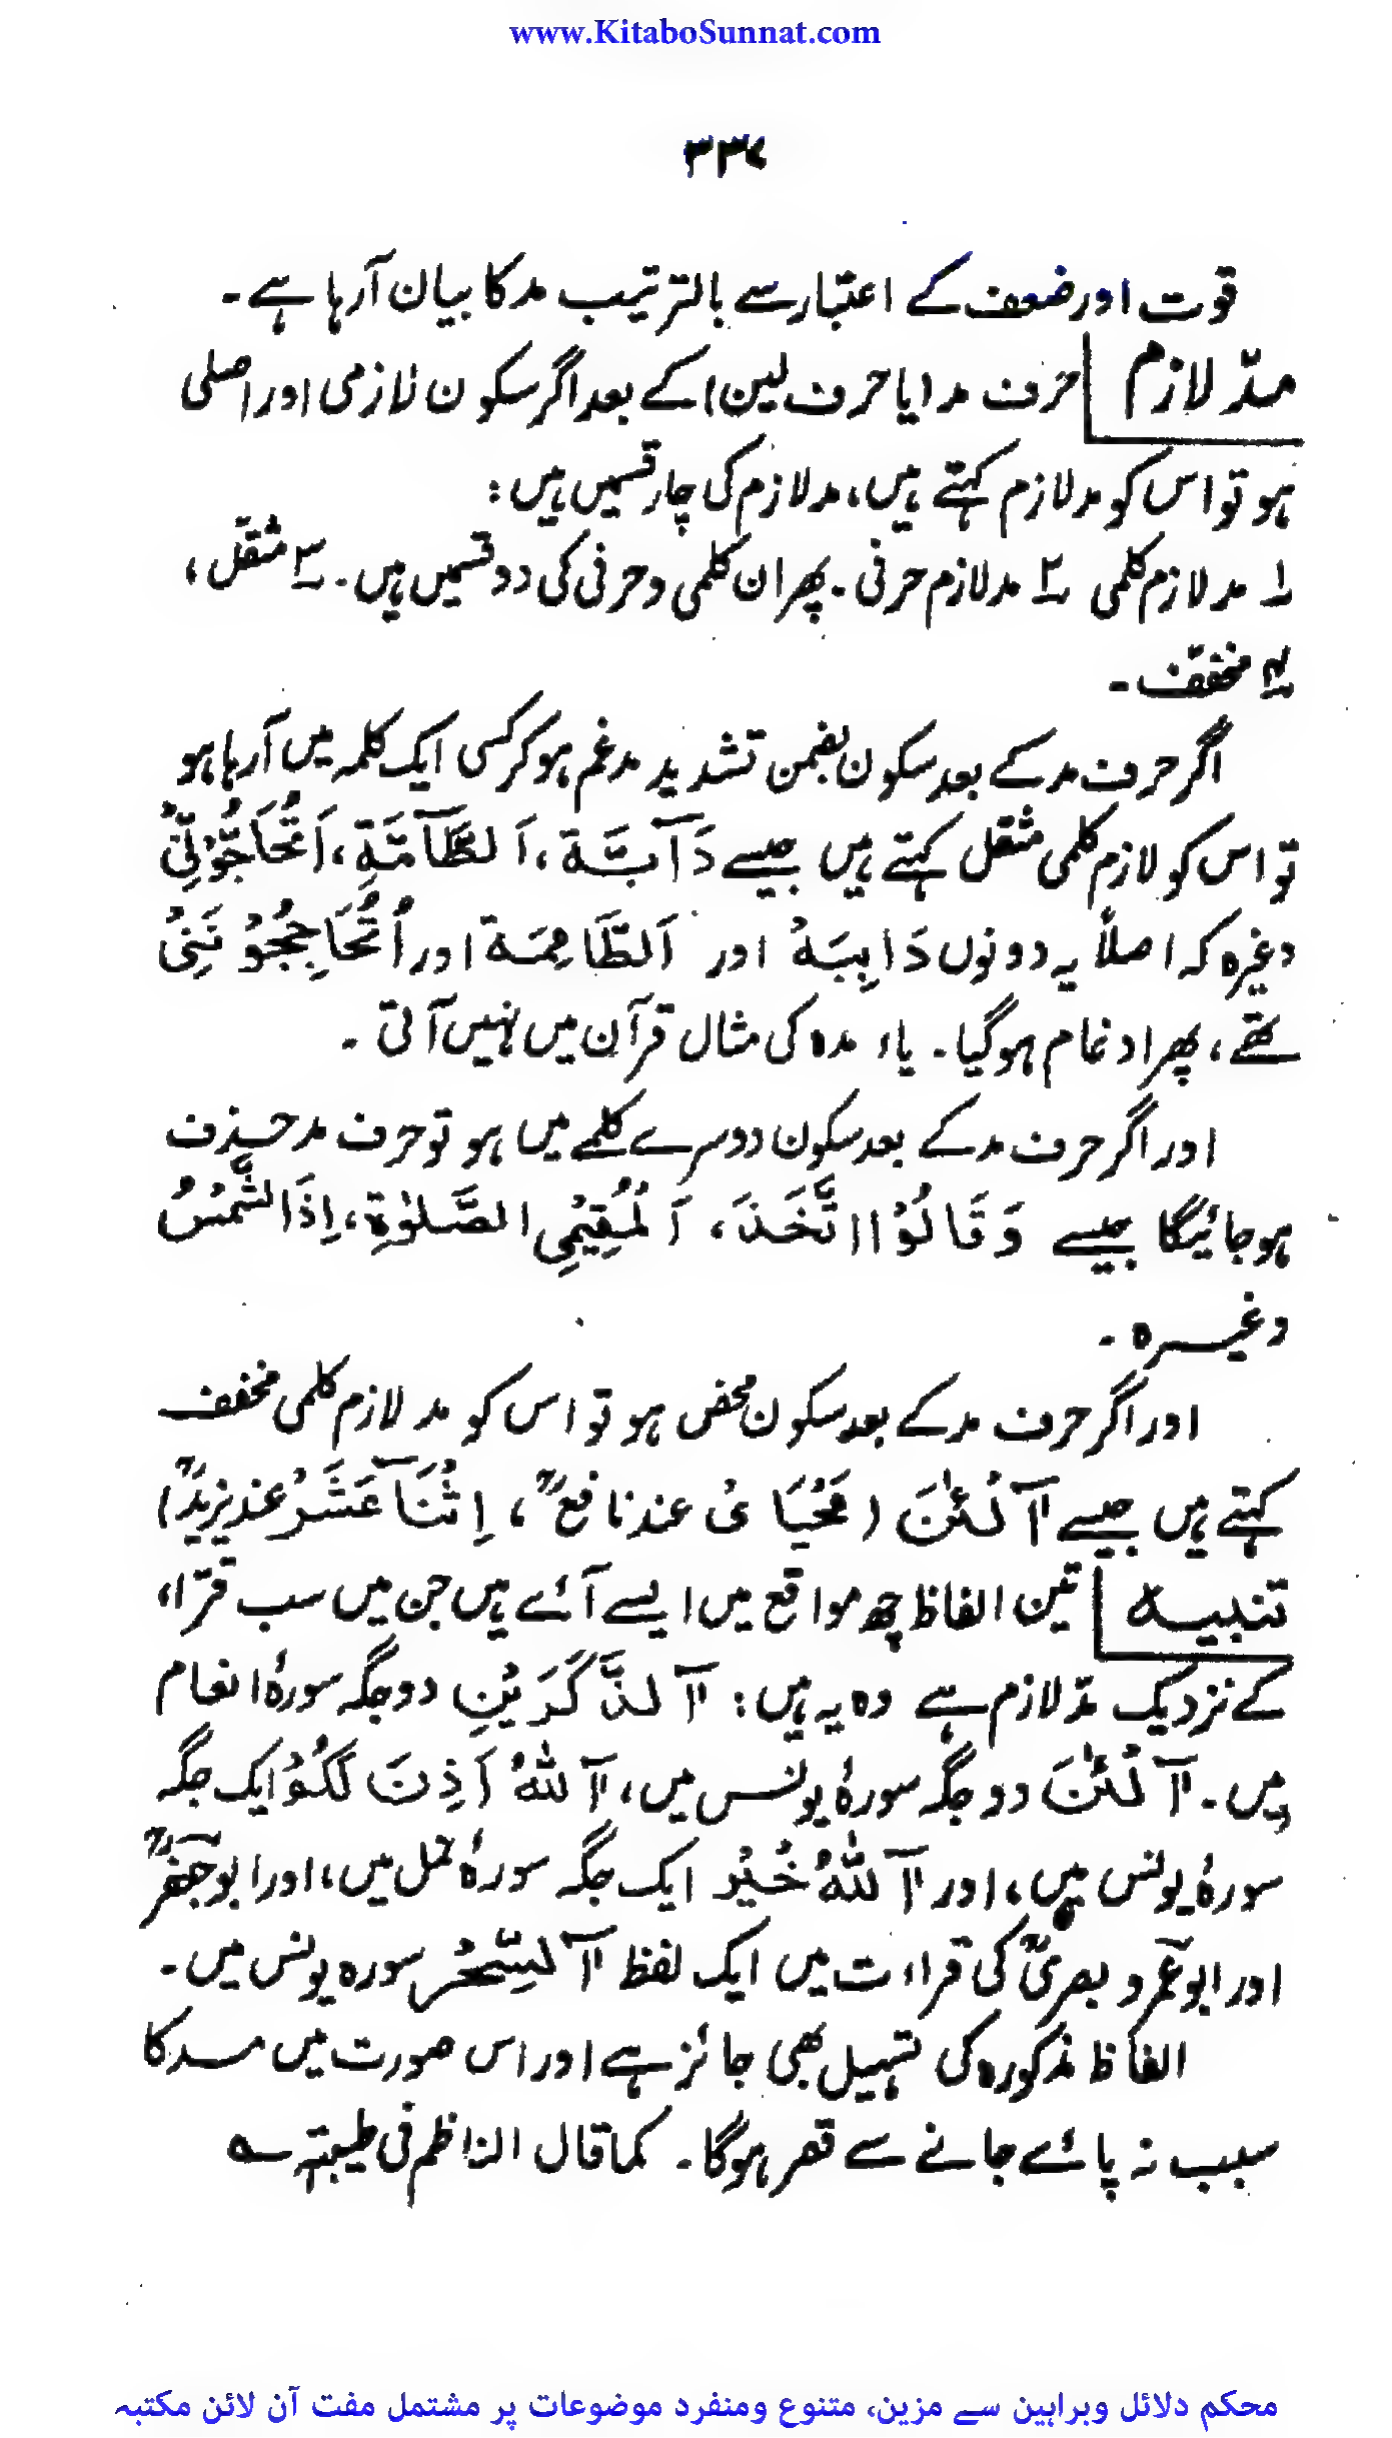 www.KitaboSunnat.com
۳۳۷
قوت اور ضعف کے اعتبار سے بالترتیب مد کا بیان آرہا ہے۔
مدّ لازم | حرف مد (یا حرف لین) کے بعد اگر سکون لازمی اور اصلی
ہو تو اس کو مد لازم کہتے ہیں، مد لازم کی چار قسمیں ہیں:
۱ مد لازم کلمی ۲ مد لازم حرفی۔ پھر ان کلمی و حرفی کی دو قسمیں ہیں۔ ۳ مثقّل،
۴ مخفّف۔
اگر حرف مد کے بعد سکون بضمن تشدید مدغم ہو کر کسی ایک کلمہ میں آرہا ہو
تو اس کو لازم کلمی مثقل کہتے ہیں جیسے دَآبَّة، اَلطَّآمَّةِ، اَتُحَاجُّوْنِّیْ
وغیرہ کہ اصلاً یہ دونوں دَابِبَهْ اور اَلطَّامِمَة اور اَتُحَاجِجُوْنَنِیْ
تھے، پھر ادغام ہوگیا۔ یاء مدہ کی مثال قرآن میں نہیں آتی۔
اور اگر حرف مد کے بعد سکون دوسرے کلمے میں ہو تو حرف مد حذف
ہوجائیگا جیسے وَقَالُوْا اتَّخَذَ، اَلْمُقِیْمِی الصَّلٰوةِ، اِذَا الشَّمْسُ
وغیرہ۔
اور اگر حرف مد کے بعد سکون محض ہو تو اس کو مد لازم کلمی مخفف
کہتے ہیں جیسے آٰلْئٰنَ (مَحْیَایْ عند نافعؒ، اِثْنَآ عْشَرَ عند یزیدؒ)
تنبیہ | تین الفاظ چھ مواقع میں ایسے آئے ہیں جن میں سب قرّاء
کے نزدیک مدّ لازم ہے وہ یہ ہیں: آٰلذَّکَرَیْنِ دو جگہ سورۂ انعام
میں۔ آٰلْئٰنَ دو جگہ سورۂ یونس میں، آٰللّٰهُ اَذِنَ لَکُمْ ایک جگہ
سورۂ یونس میں، اور آٰللّٰهُ خَیْر ایک جگہ سورۂ نمل میں، اور ابوجعفرؒ
اور ابوعمرو بصریؒ کی قراءت میں ایک لفظ آٰلسِّحْرُ سورہ یونس میں۔
الفاظ مذکورہ کی تسہیل بھی جائز ہے اور اس صورت میں مد کا
سبب نہ پائے جانے سے قصر ہوگا۔ کما قال الناظم فی طیبتہ ؎
محکم دلائل وبراہین سے مزین، متنوع ومنفرد موضوعات پر مشتمل مفت آن لائن مکتبہ